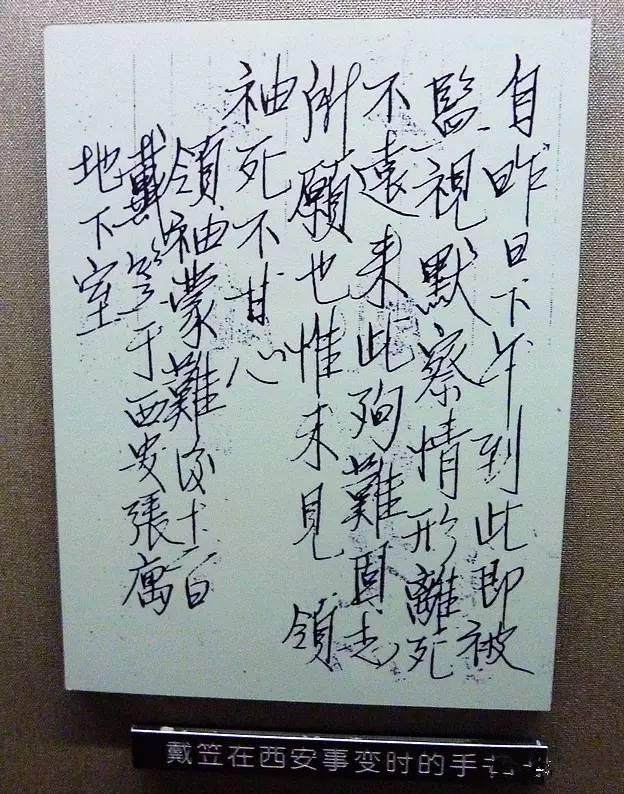 自昨日下午到此即被
監視默察情形離死
不遠来此殉難固志
所願也惟未見 領
袖死不甘心
領袖蒙難後十二日
戴笠于西安張寓
地下室
戴笠在西安事变时的手